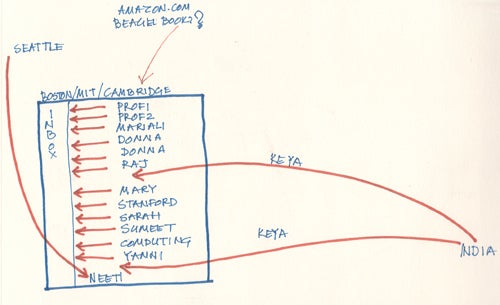 AMAZON.COM
BEAGEL BOOK?
SEATTLE
BOSTON/MIT/CAMBRIDGE
INBOX
PROF1
PROF2
MARIALI
DONNA
DONNA
RAJ
KEYA
MARY
STANFORD
SARAH
SUMEET
COMPUTING
YANNI
KEYA
INDIA
NEETI